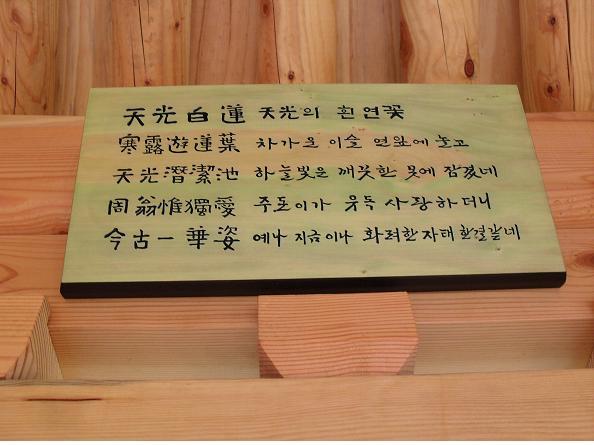 天光白蓮 天光의 흰연꽃
寒露遊蓮葉 차가운 이슬 연잎에 놀고
天光潛潔池 하늘빛은 깨끗한 못에 잠겼네
周翁惟獨愛 주도이가 유독 사랑하더니
今古一華姿 예나 지금이나 화려한자태 한결같네